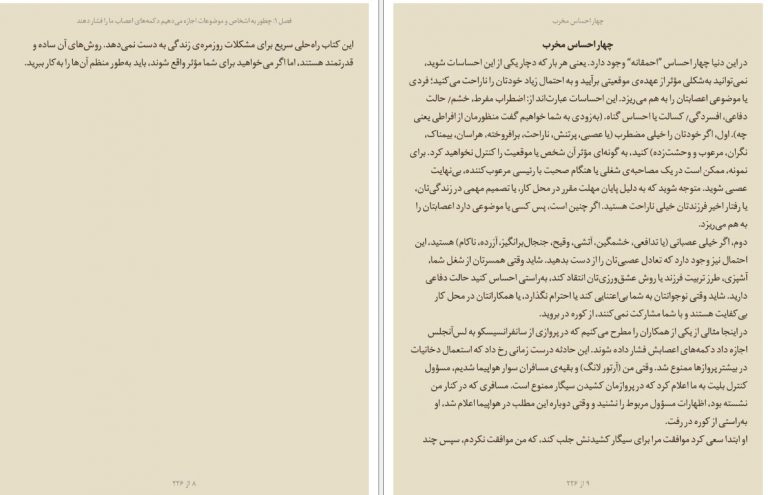 فصل ۱: چطور به اشخاص و موضوعات اجازه می‌دهیم دکمه‌های اعصاب ما را فشار دهند
این کتاب راه‌حلی سریع برای مشکلات روزمره‌ی زندگی به دست نمی‌دهد. روش‌های آن ساده و
قدرتمند هستند، اما اگر می‌خواهید برای شما مؤثر واقع شوند، باید به‌طور منظم آن‌ها را به کار ببرید.
۸ از ۲۲۶
چهار احساس مخرب
چهار احساس مخرب
در این دنیا چهار احساس "احمقانه" وجود دارد. یعنی هر بار که دچار یکی از این احساسات شوید،
نمی‌توانید به‌شکلی مؤثر از عهده‌ی موقعیتی برآیید و به احتمال زیاد خودتان را ناراحت می‌کنید؛ فردی
یا موضوعی اعصابتان را به هم می‌ریزد. این احساسات عبارت‌اند از: اضطراب مفرط، خشم/ حالت
دفاعی، افسردگی/ کسالت یا احساس گناه. (به‌زودی به شما خواهیم گفت منظورمان از افراطی یعنی
چه). اول، اگر خودتان را خیلی مضطرب (یا عصبی، پرتنش، ناراحت، برافروخته، هراسان، بیمناک،
نگران، مرعوب و وحشت‌زده) کنید، به گونه‌ای مؤثر آن شخص یا موقعیت را کنترل نخواهید کرد. برای
نمونه، ممکن است در یک مصاحبه‌ی شغلی یا هنگام صحبت با رئیسی مرعوب‌کننده، بی‌نهایت
عصبی شوید. متوجه شوید که به دلیل پایان مهلت مقرر در محل کار، یا تصمیم مهمی در زندگی‌تان،
یا رفتار اخیر فرزندتان خیلی ناراحت هستید. اگر چنین است، پس کسی یا موضوعی دارد اعصابتان را
به هم می‌ریزد.
دوم، اگر خیلی عصبانی (یا تدافعی، خشمگین، آتشی، وقیح، جنجال‌برانگیز، آزرده، ناکام) هستید، این
احتمال نیز وجود دارد که تعادل عصبی‌تان را از دست بدهید. شاید وقتی همسرتان از شغل شما،
آشپزی، طرز تربیت فرزند یا روش عشق‌ورزی‌تان انتقاد کند، به‌راستی احساس کنید حالت دفاعی
دارید. شاید وقتی نوجوانتان به شما بی‌اعتنایی کند یا احترام نگذارد، یا همکارانتان در محل کار
بی‌کفایت هستند و با شما مشارکت نمی‌کنند، از کوره در بروید.
در اینجا مثالی از یکی از همکاران را مطرح می‌کنیم که در پروازی از سانفرانسیسکو به لس‌آنجلس
اجازه داد دکمه‌های اعصابش فشار داده شوند. این حادثه درست زمانی رخ داد که استعمال دخانیات
در بیشتر پروازها ممنوع شد. وقتی من (آرتور لانگ) و بقیه‌ی مسافران سوار هواپیما شدیم، مسؤول
کنترل بلیت به ما اعلام کرد که در پروازمان کشیدن سیگار ممنوع است. مسافری که در کنار من
نشسته بود، اظهارات مسؤول مربوط را نشنید و وقتی دوباره این مطلب در هواپیما اعلام شد، او
به‌راستی از کوره در رفت.
او ابتدا سعی کرد موافقت مرا برای سیگار کشیدنش جلب کند، که من موافقت نکردم، سپس چند
۹ از ۲۲۶